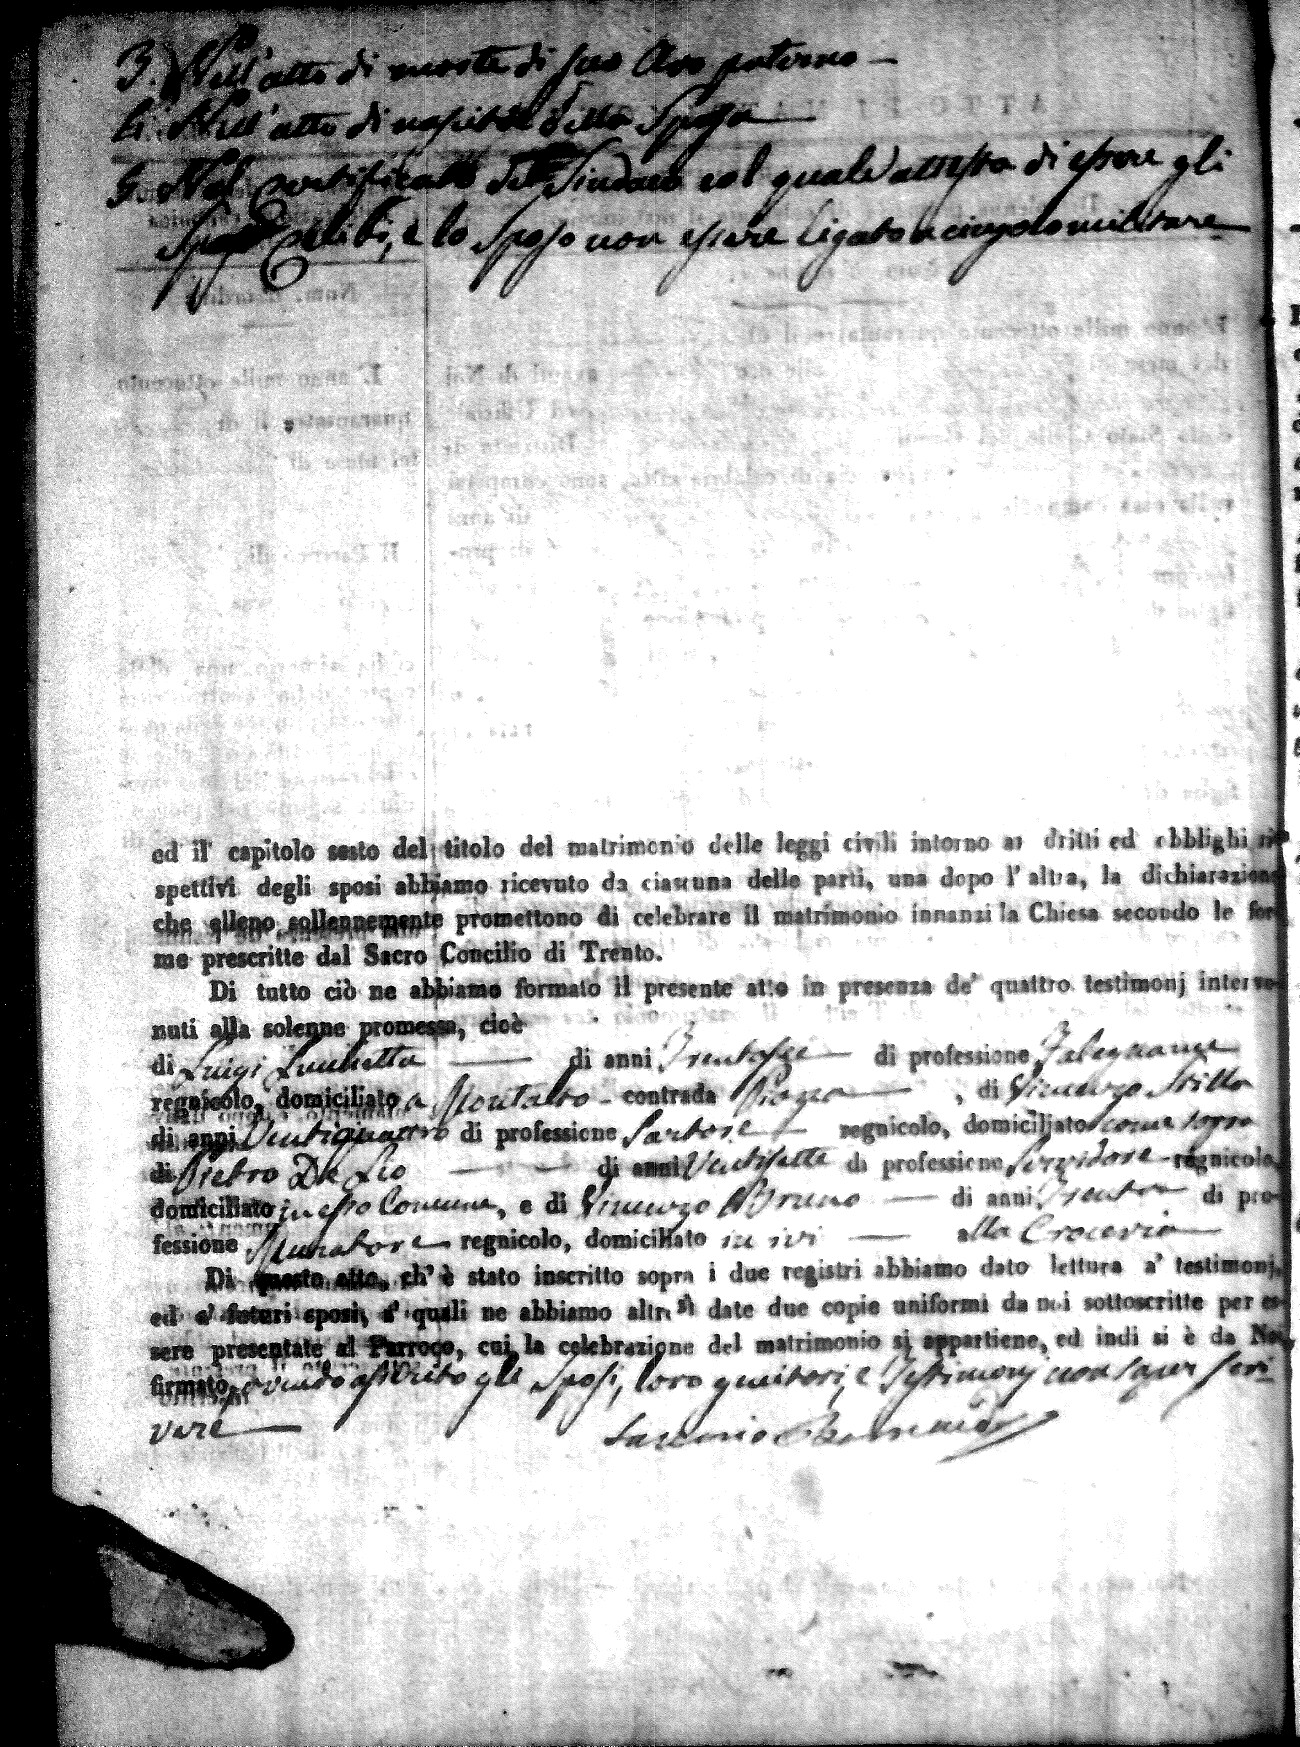 3. Nell'atto di morte di suo Avo paterno —
4. Nell'atto di nascita della Sposa
5. Nel certificato del Sindaco col quale attesta di essere gli
Sposi celibi, e lo Sposo non essere ligato a cingolo militare
ed il capitolo sesto del titolo del matrimonio delle leggi civili intorno ai dritti ed obblighi ri-
spettivi degli sposi abbiamo ricevuto da ciascuna delle parti, una dopo l'altra, la dichiarazione
che elleno sollennemente promettono di celebrare il matrimonio innanzi la Chiesa secondo le for-
me prescritte dal Sacro Concilio di Trento.
Di tutto ciò ne abbiamo formato il presente atto in presenza de' quattro testimonj interve-
nuti alla solenne promessa, cioè
di Luigi Luchetta — di anni Trentasei — di professione Falegname
regnicolo, domiciliato a Montalto - contrada —, di Vincenzo Stillo
di anni Ventiquattro di professione Sartore — regnicolo, domiciliato come sopra
di Pietro De Leo — — di anni Ventisette di professione Servidore - regnicolo,
domiciliato in esso Comune, e di Vincenzo Bruno — di anni Trenta di pro-
fessione Muratore regnicolo, domiciliato in ivi — alla Crocevia
Di questo atto, ch'è stato inscritto sopra i due registri abbiamo dato lettura a' testimonj,
ed a' futuri sposi, a' quali ne abbiamo altresì date due copie uniformi da noi sottoscritte per es-
sere presentate al Parroco, cui la celebrazione del matrimonio si appartiene, ed indi si è da Noi
firmato, avendo asserito gli Sposi, loro genitori, e Testimonj non saper scri-
vere —